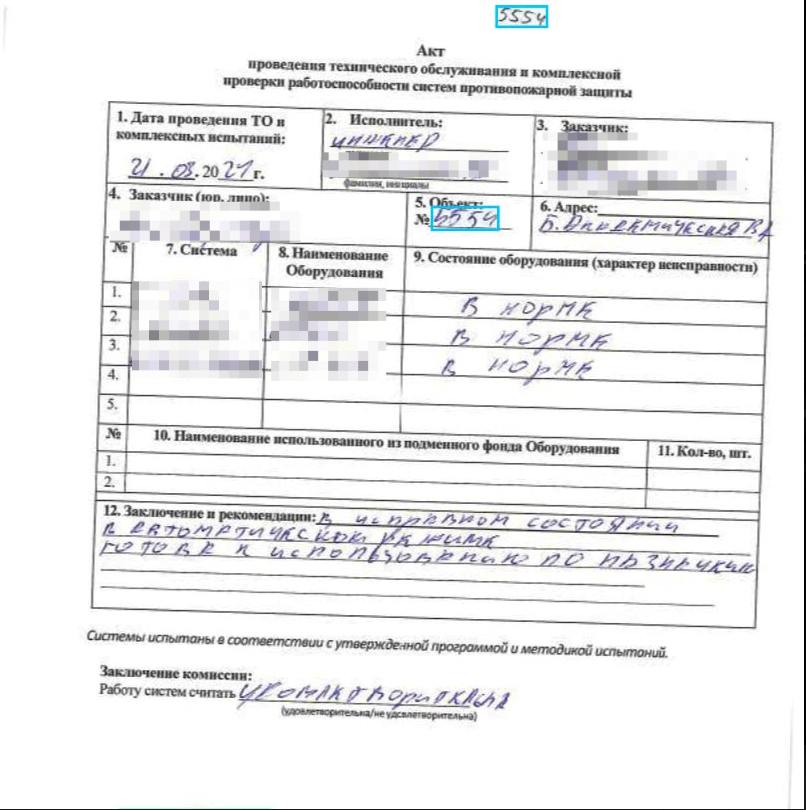 5554
Акт
проведения технического обслуживания и комплексной
проверки работоспособности систем противопожарной защиты
1. Дата проведения ТО и комплексных испытаний:
21.08.2021 г.
2. Исполнитель:
инженер
фамилия, инициалы
3. Заказчик:
4. Заказчик (юр. лицо):
5. Объект:
№ 5554
6. Адрес:
Б.
№ 7. Система 8. Наименование Оборудования 9. Состояние оборудования (характер неисправности)
1. в норме
2. в норме
3. в норме
4.
5.
№ 10. Наименование использованного из подменного фонда Оборудования 11. Кол-во, шт.
1.
2.
12. Заключение и рекомендации: в исправном состоянии
в автоматическом режиме
готова к использованию по
Системы испытаны в соответствии с утвержденной программой и методикой испытаний.
Заключение комиссии:
Работу систем считать удовлетворительна
(удовлетворительна/не удовлетворительна)